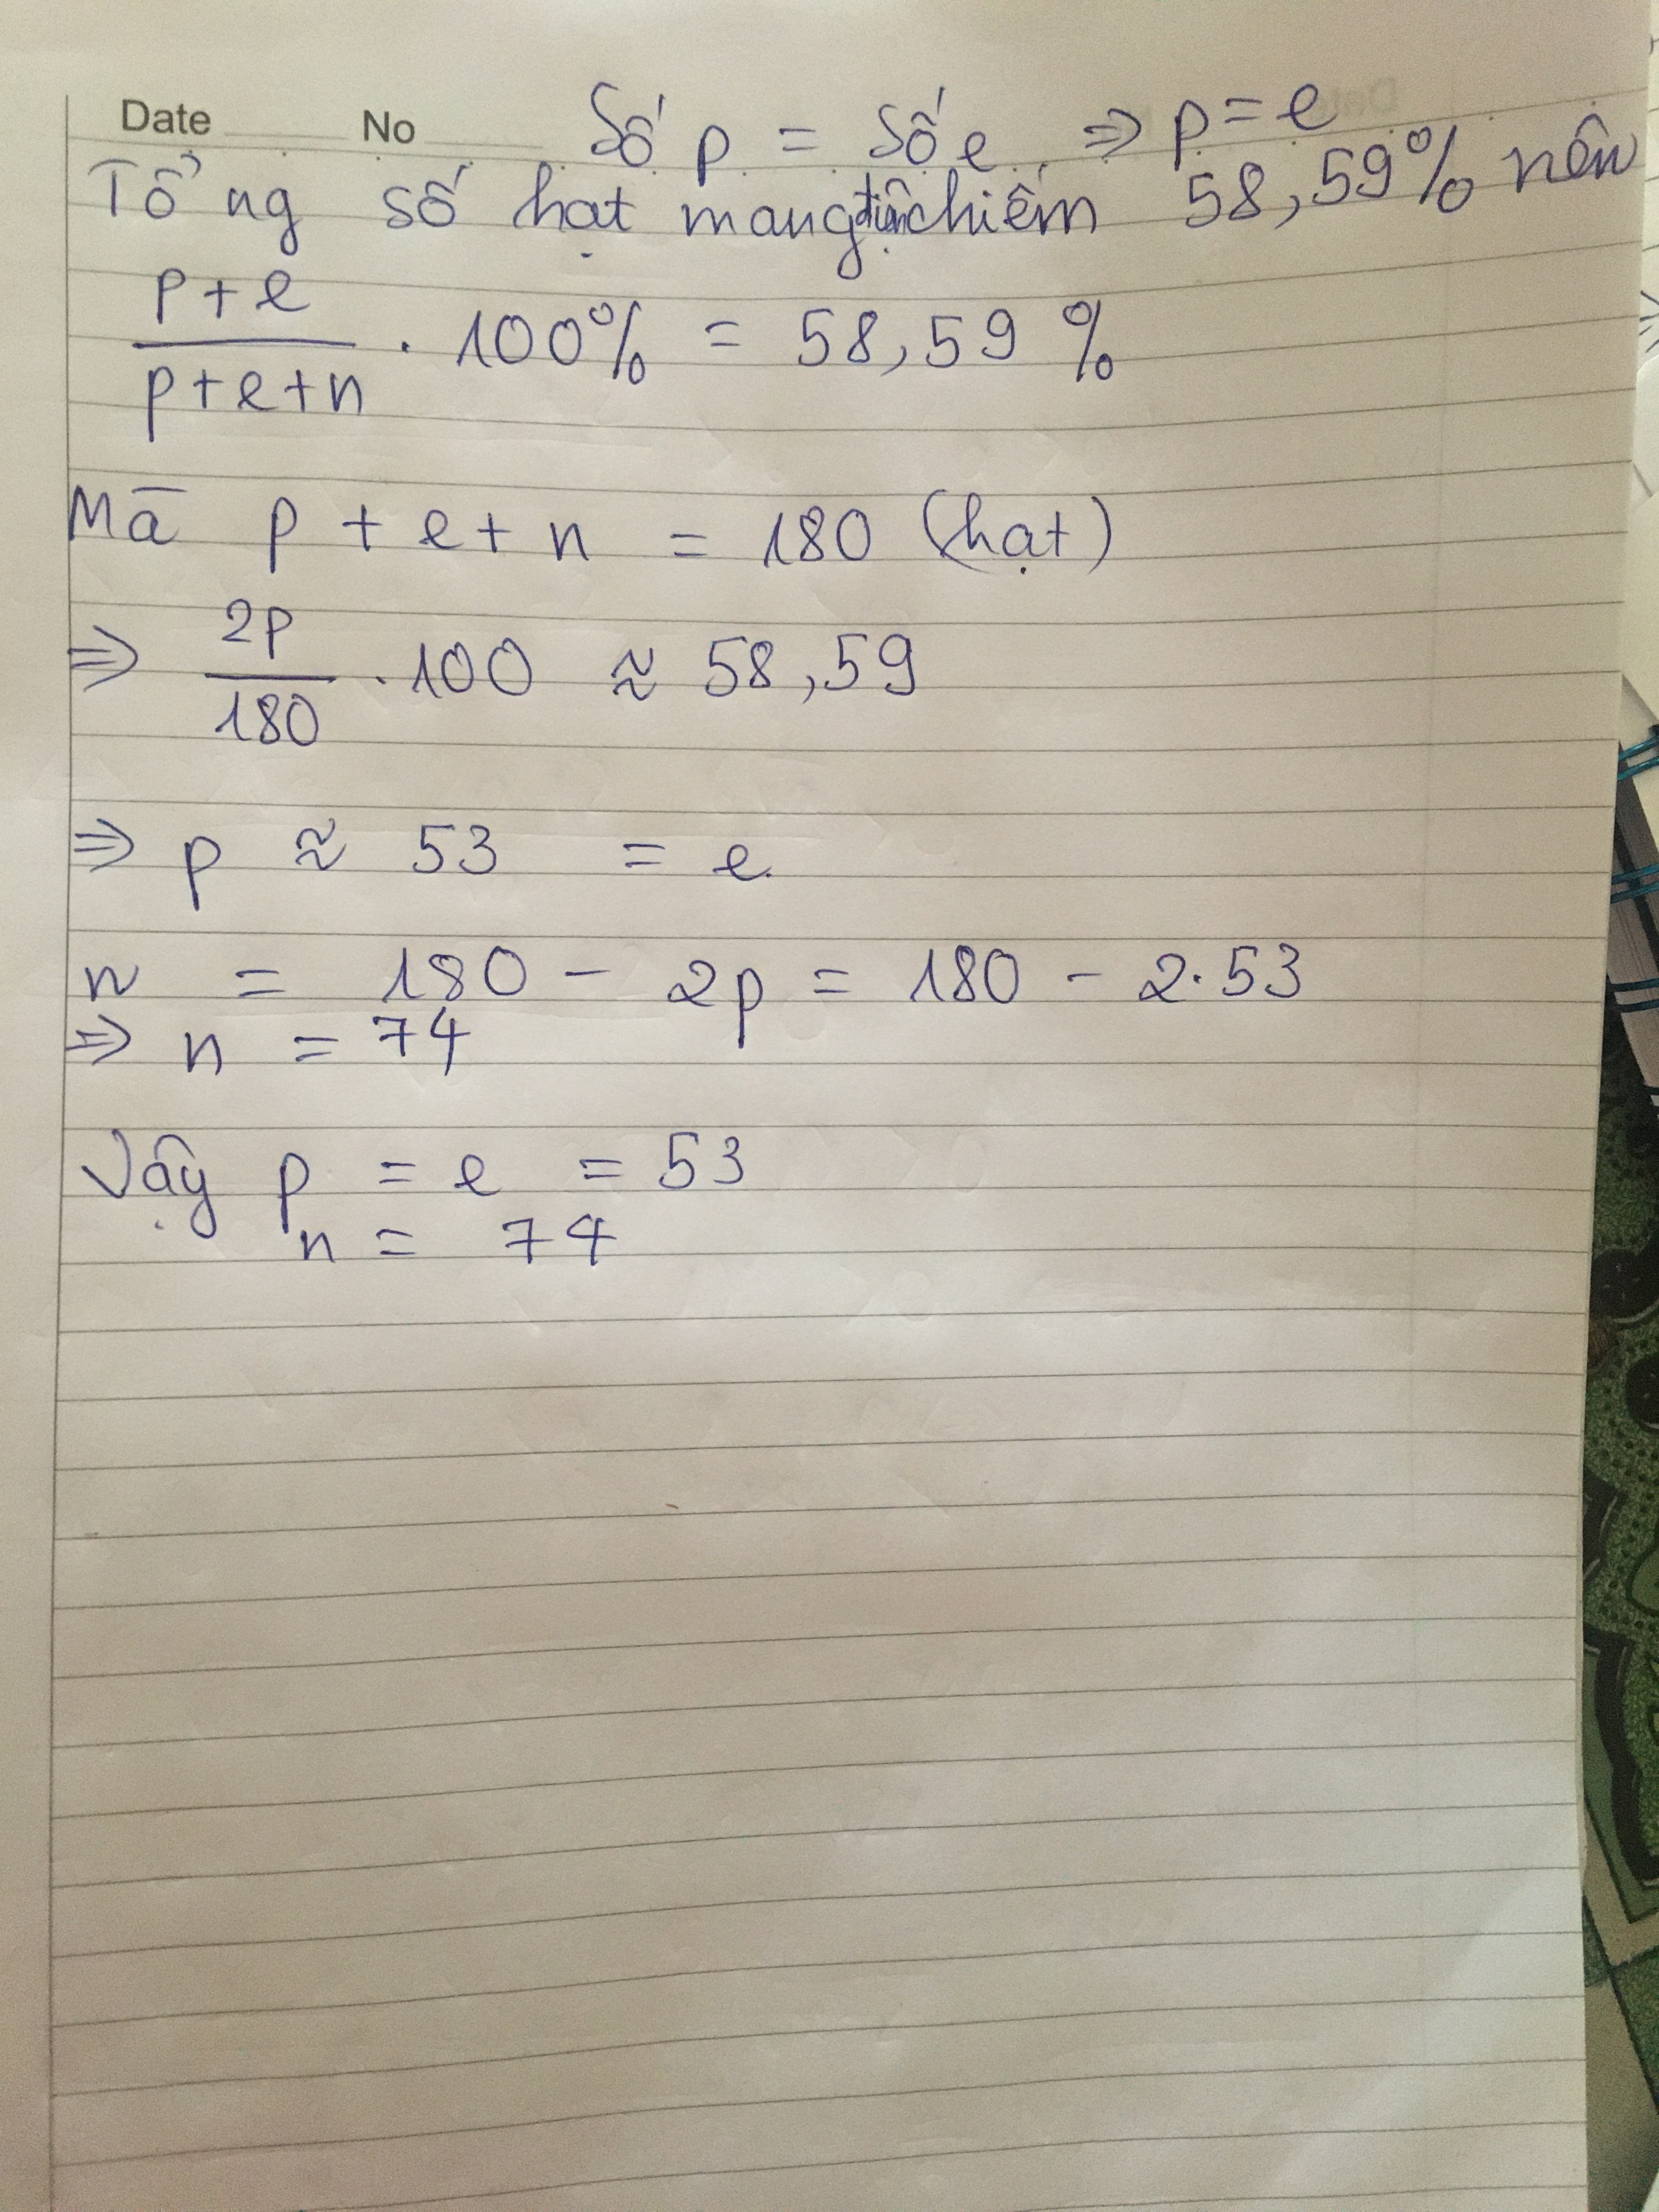 Date No Số p = số e. ⇒ p = e
Tổng số hạt mang điện chiếm 58,59% nên
p+e
/ p+e+n . 100% = 58,59 %
Mà p + e + n = 180 (hạt)
⇒ 2p / 180 . 100 ≈ 58,59
⇒ p ≈ 53 = e.
n = 180 - 2p = 180 - 2.53
⇒ n = 74
Vậy p = e = 53
n = 74